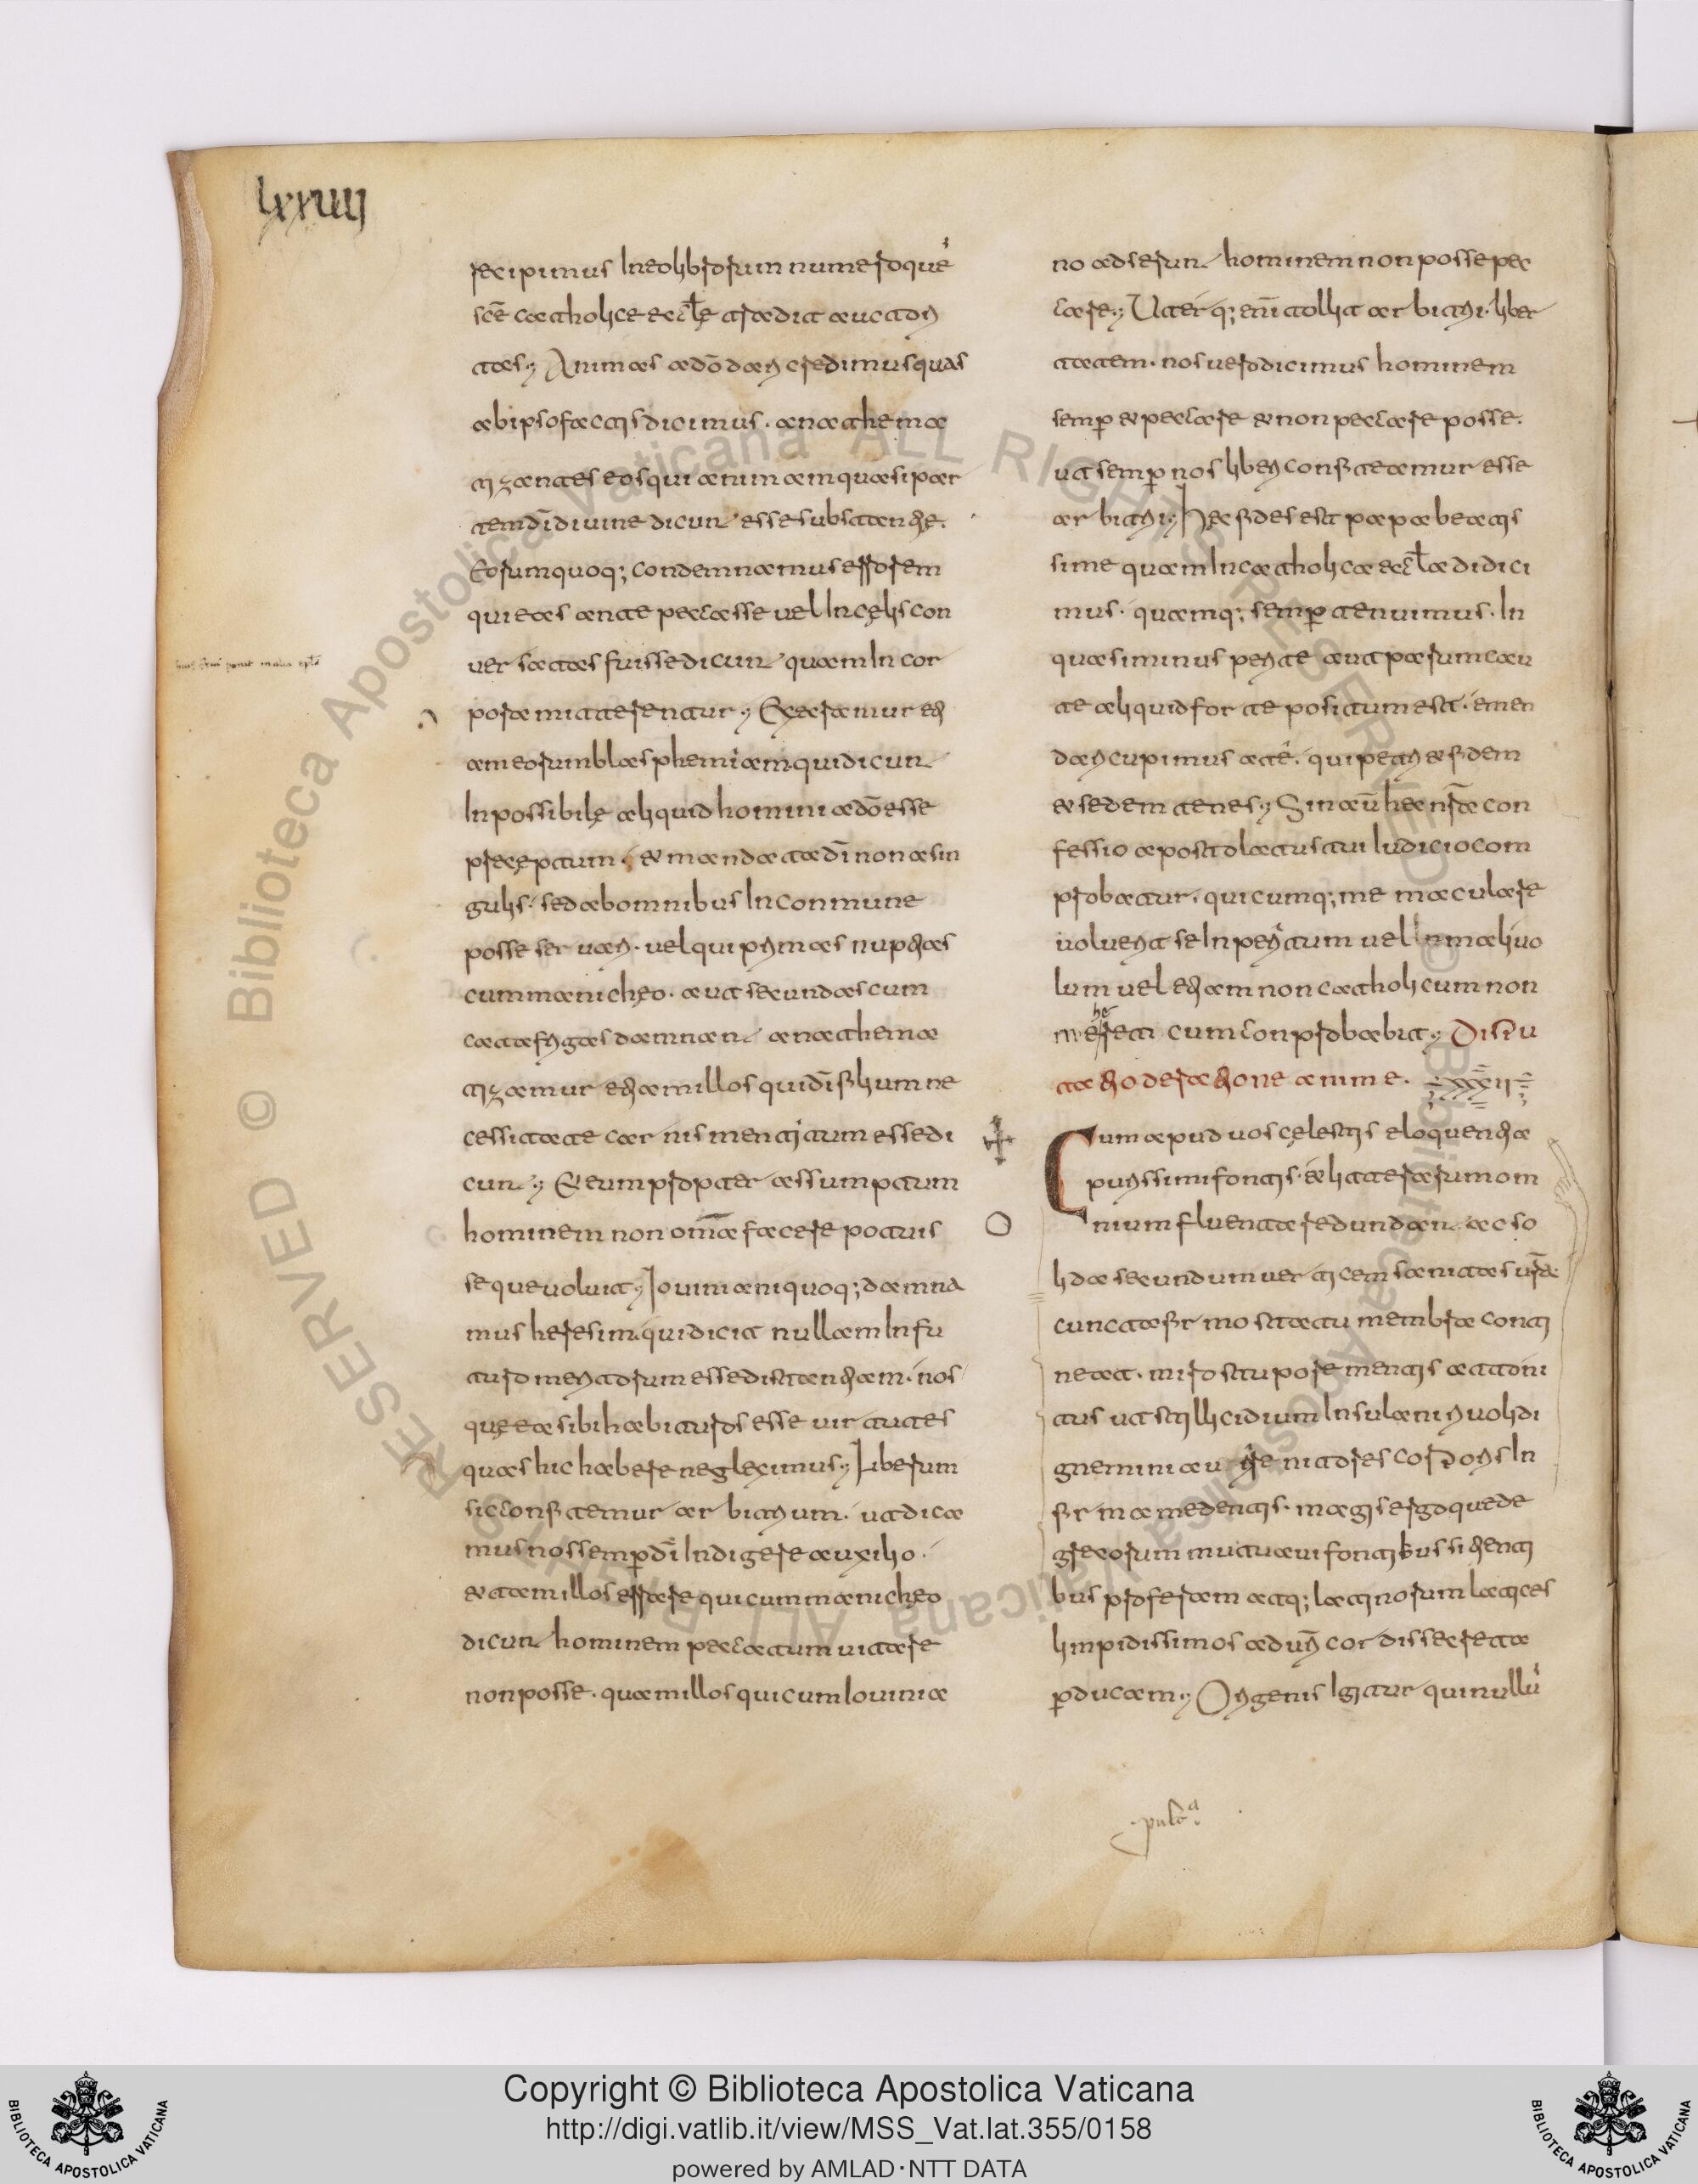 lxxuiij
recipimus In eo librorum numero que
scē catholice eccłę tradit auctori
tas; Animas a dō dari credimus quas
ab ipso factas dicimus. anathema
tizantes eos qui animam quasi par
tem dī diuine dicunt esse substantie.
Eorum quoq; condemnamus errorem
qui eas ante peccasse uel In cęlis con
uersatas fuisse dicunt quam In cor
pora mitterentur; Execramur eti
am eorum blasphemiam qui dicunt
Inpossibile aliquid homini a dō esse
preceptum. et mandata dī non a sin
gulis. sed ab omnibus In conmune
posse seruari. uel qui primas nuptias
cum manicheo. aut secundas cum
catafrigas damnant anathema
tizamur etiam illos qui dī filium ne
cessitate carnis mentitum esse di
cunt; Et eum propter assumptum
hominem non omīa facere potuis
se que uoluit; Iouiniani quoq; damna
mus heresim. qui dicit nullam In fu
turo meritorum esse distantiam. nos
que ea sibi habituros esse uirtutes
quas hic habere negleximus; Liberum
sic confitemur arbitrium. ut dica
mus nos semp dī Indigere auxilio.
et tam illos errare qui cum manicheo
dicunt hominem peccatum uitare
non posse. quam illos qui cum Iouinia
no adserunt hominem non posse pec
care; Uterq; enī tollit arbitrii liber
tatem. nos uero dicimus hominem
semp et peccare et non peccare posse.
ut semp nos liberi confiteamur esse
arbitrii; Hec fides est papa beatis
sime quam In catholica eccła didici
mus. quamq; semp tenuimus. In
qua si minus perite aut parum cau
te aliquid forte positum est. emen
dari cupimus a te. qui petri et fidem
et sedem tenes; Sin aū hec nr̄a con
fessio apostolatus tui Iudicio com
probatur. quicumq; me maculare
uoluerit se Inperitum uel Inmaliuo
lum uel etiam non catholicum non
hereticum conprobabit; Disпu
tatio de ratione anime. xxxii
Cum apud uos cęlestis eloquentia
purissimi fontis. et litterarum om
nium fluenta redundant ac so
lida secundum uerticem sanitas ur̄a
cuncta firmo statu membra conti
neat. miro stupore mentis attoni
tus ut stillicidium Insulani riuoli di
gnemini aut renitores corporis In
firma medentis. magis ergo quede
grexorum mutuaui fontibus sitienti
bus proferam atq; latinorum latices
limpidissimos ad uri cordis secreta
pducam; Origenis Igitur qui nullū